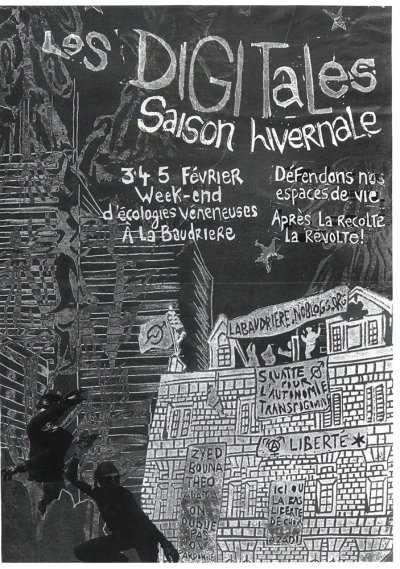 Les DIGITALES
Saison hivernale
3 4 5 Février
Week-end
d'écologies Vénéneuses
À La Baudriere
Défendons nos
espaces de vie
Après La Recolte
La Révolte!
LABAUDRIERE.NOBLOGS.ORG
SQUATTE
POUR
L'AUTONOMIE
LIBERTÉ
ZYED
BOUNA
THEO
ADAMA
ON
OUBLIE
PAS
ON
ICI OU
LA BAS
LIBERTÉ
DE CHOIX
AZADI